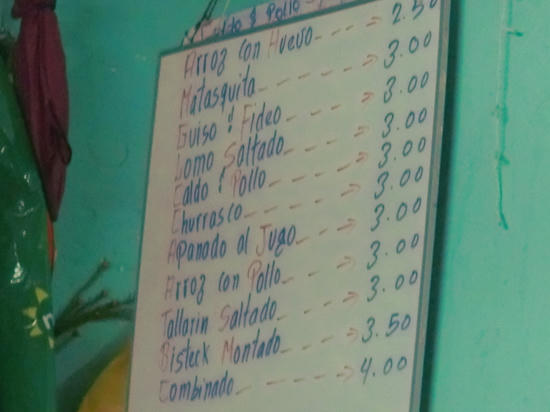 Caldo d Pollo
Arroz con Huevo----→ 2.50
Matasquita-------→ 3.00
Guiso d Fideo-----→ 3.00
Lomo Saltado-----→ 3.00
Caldo d Pollo-----→ 3.00
Churrasco-------→ 3.00
Apanado al Jugo----→ 3.00
Arroz con Pollo----→ 3.00
Tallarin Saltado----→ 3.00
Bisteck Montado----→ 3.50
Combinado------→ 4.00